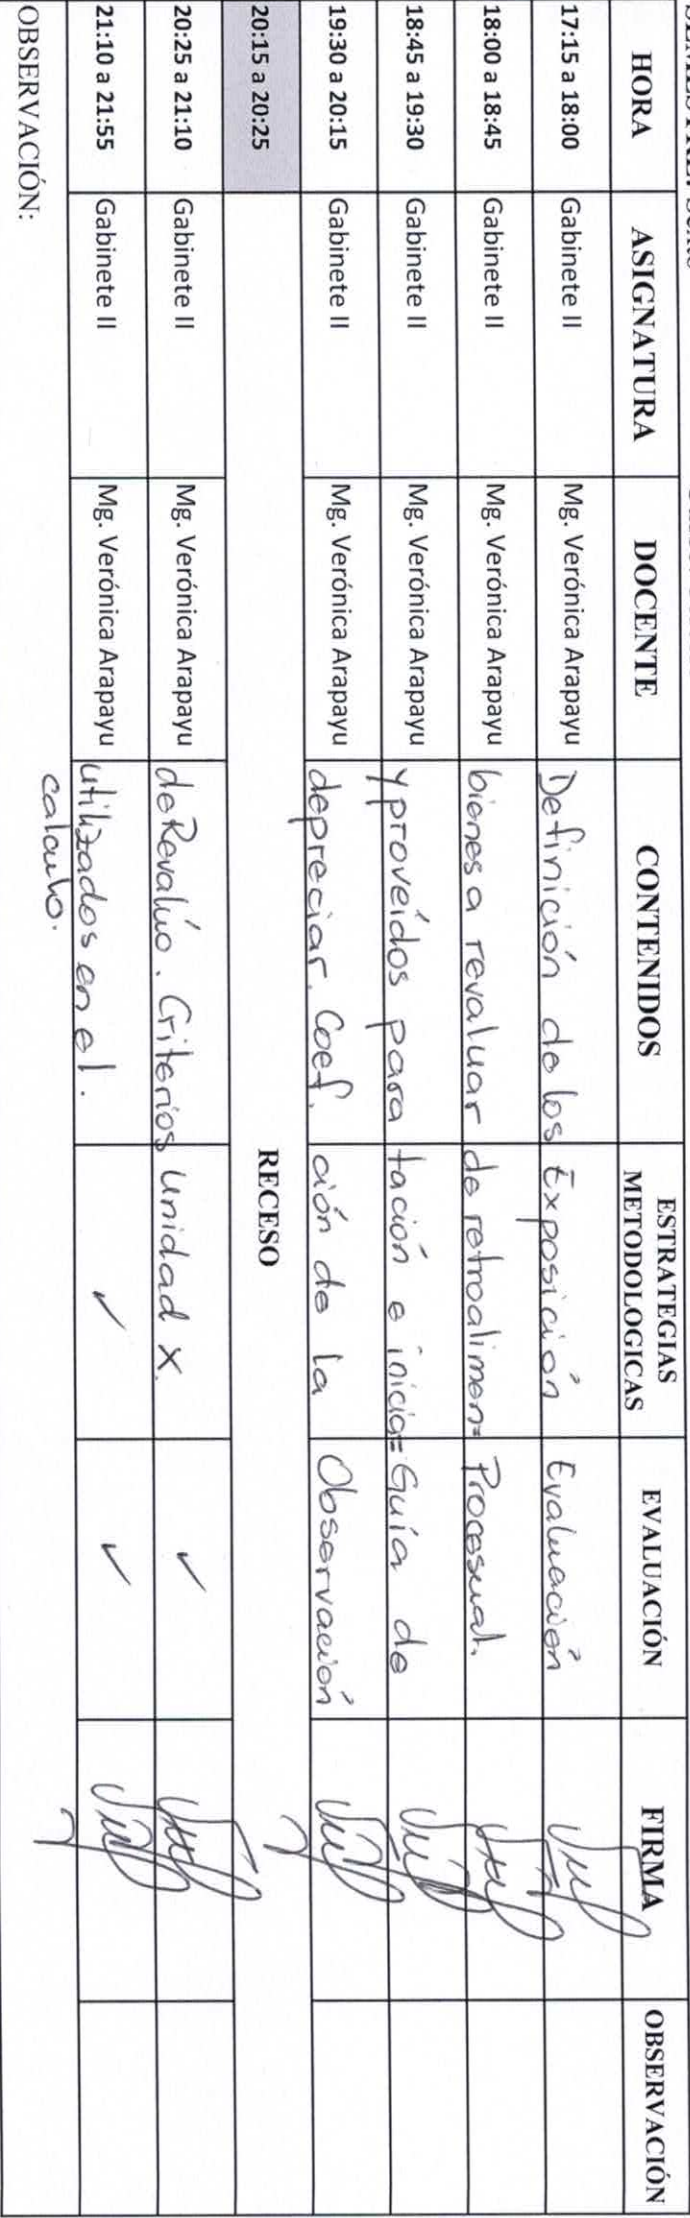 HORA ASIGNATURA DOCENTE CONTENIDOS ESTRATEGIAS METODOLOGICAS EVALUACIÓN FIRMA OBSERVACIÓN
17:15 a 18:00 Gabinete II Mg. Verónica Arapayu Definición de los Exposición Evaluación
18:00 a 18:45 Gabinete II Mg. Verónica Arapayu bienes a revaluar de retroalimen= Procesual.
18:45 a 19:30 Gabinete II Mg. Verónica Arapayu y proveídos para tación e inicia= Guía de
19:30 a 20:15 Gabinete II Mg. Verónica Arapayu depreciar. Coef. ción de la Observación
20:15 a 20:25 RECESO
20:25 a 21:10 Gabinete II Mg. Verónica Arapayu de Revalúo. Criterios Unidad X. ✓
21:10 a 21:55 Gabinete II Mg. Verónica Arapayu utilizados en el. ✓ ✓
calculo.
OBSERVACIÓN: